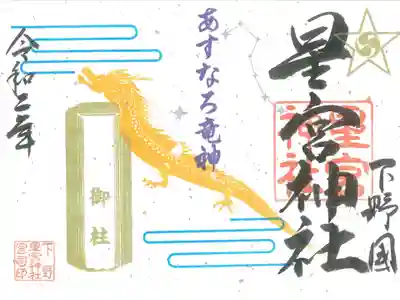 下野国
星宮神社
星宮
神社
あすなろ竜神
御柱
令和二年
下野
星宮神社
宮司印